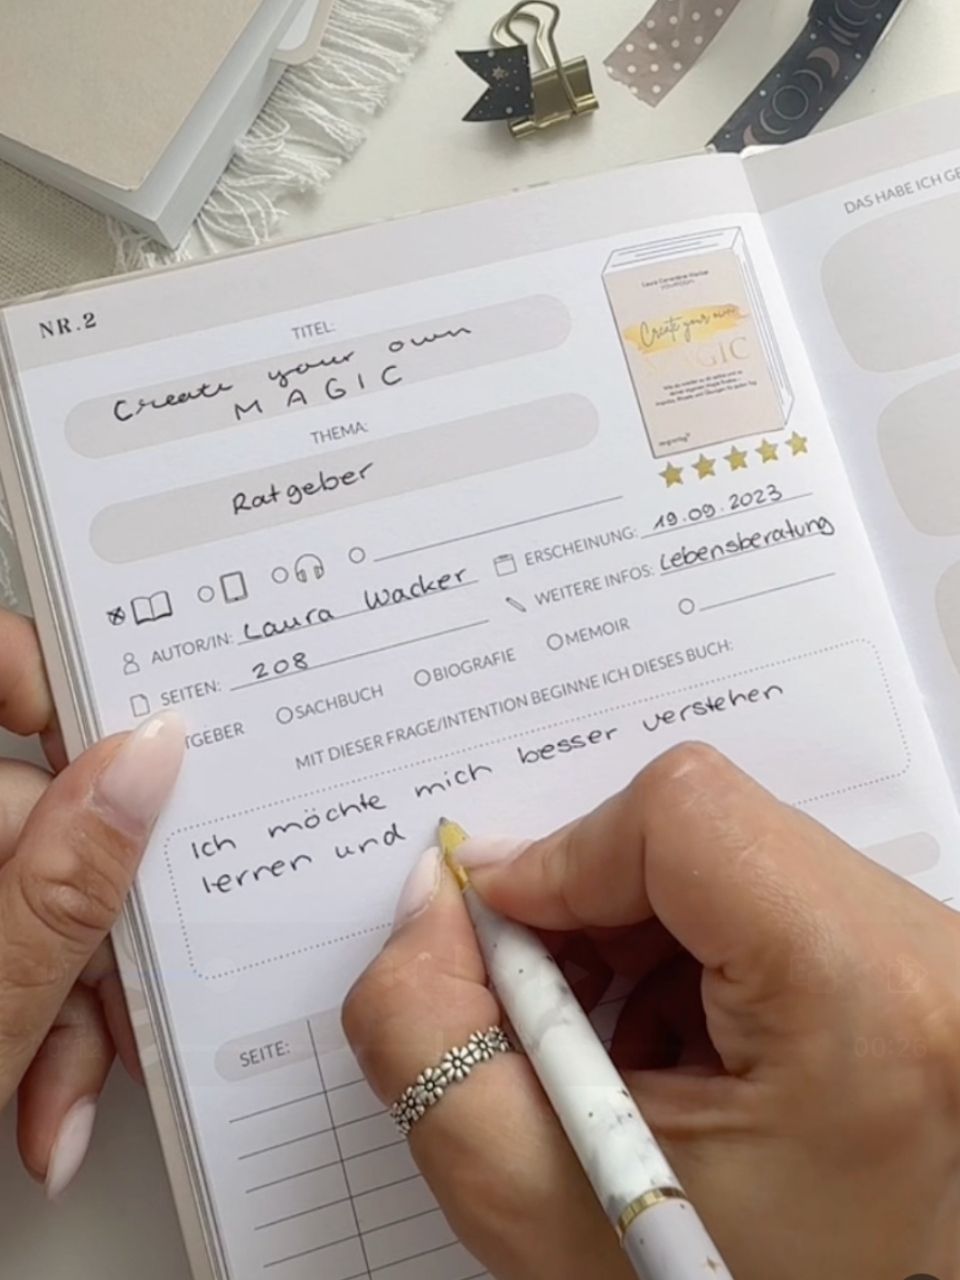 DAS HABE ICH GE
NR.2
TITEL:
Create your own
MAGIC
THEMA:
Ratgeber
Create your own
MAGIC
ERSCHEINUNG: 19.09.2023
AUTOR/IN: Laura Wacker
WEITERE INFOS: Lebensberatung
SEITEN: 208
TGEBER SACHBUCH BIOGRAFIE MEMOIR
MIT DIESER FRAGE/INTENTION BEGINNE ICH DIESES BUCH:
Ich möchte mich besser verstehen
lernen und
SEITE:
00:26